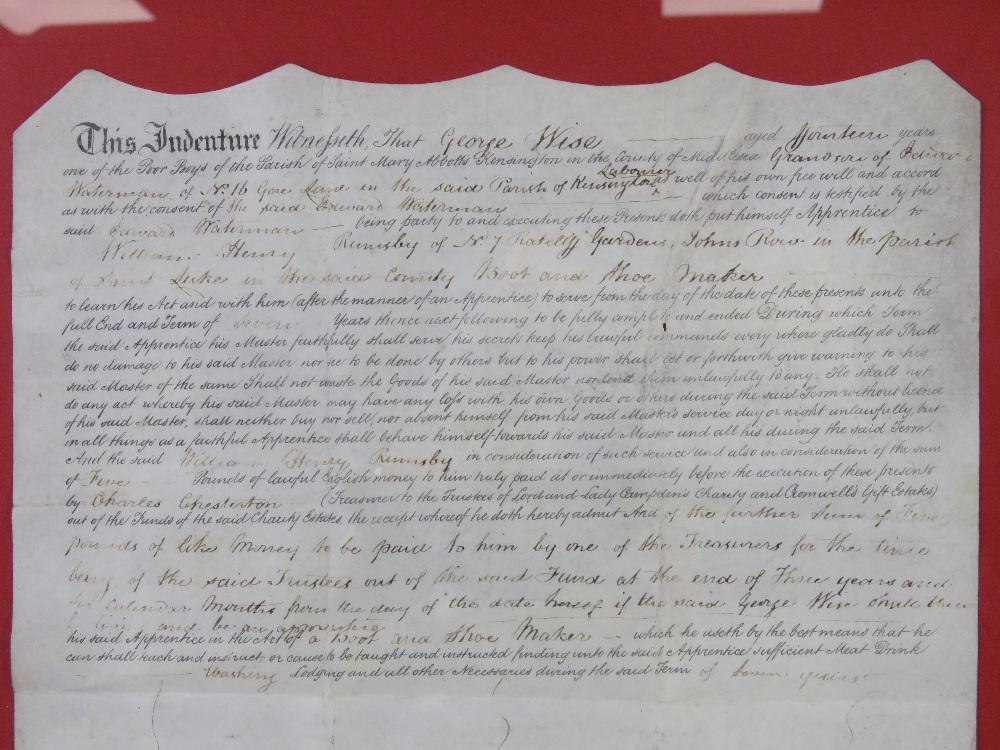 This Indenture Witnesseth, That George Wise aged fourteen years
one of the Poor Boys of the Parish of Saint Mary Abbotts Kensington in the County of Middlesex Grandson of Edward
Labourer
Waterman of No. 16 Gore Lane in the said Parish of Kensington as well of his own free will and accord
as with the consent of the said Edward Waterman which consent is testified by the
said Edward Waterman being party to and executing these Presents doth put himself Apprentice to
William Henry Rumsby of No. 7 Gardens, Johns Row in the parish
of Saint Luke in the said County Boot and Shoe Maker
to learn his Act and with him (after the manner of an Apprentice) to serve from the day of the date of these presents unto the
full End and Term of Seven Years thence next following to be fully complete and ended During which Term
the said Apprentice his Master faithfully shall serve his secrets keep his lawful commands every where gladly do Shall
do no damage to his said Master nor se to be done by others but to his power shall let or forthwith give warning to his
said Master of the same Shall not waste the Goods of his said Master nor lend them unlawfully to any. He shall not
do any act whereby his said Master may have any Loss with his own Goods or others during the said Term without licence
of his said Master, shall neither buy nor sell, nor absent himself from his said Master's service day or night unlawfully, but
in all things as a faithful Apprentice shall behave himself towards his said Master and all his during the said Term.
And the said William Henry Rumsby in consideration of such service and also in consideration of the sum
of Five Pounds of lawful English money to him truly paid at or immediately before the execution of these presents
by Charles Chesterton (Treasurer to the Trustees of Lord and Lady Campden's Charity and Cromwell's Gift Estates)
out of the Funds of the said Charity Estates, the receipt whereof he doth hereby admit And of the further Sum of Five
pounds of like Money to be paid to him by one of the Treasurers for the time
being of the said Trustees out of the said Fund at the end of Three years and
Calendar Months from the day of the date hereof if the said George Wise shall then
be living and be an apprentice
his said Apprentice in the Act of a Boot and Shoe Maker which he useth by the best means that he
can shall teach and instruct or cause to be taught and instructed finding unto the said Apprentice sufficient Meat Drink
Washing Lodging and all other Necessaries during the said Term of Seven years